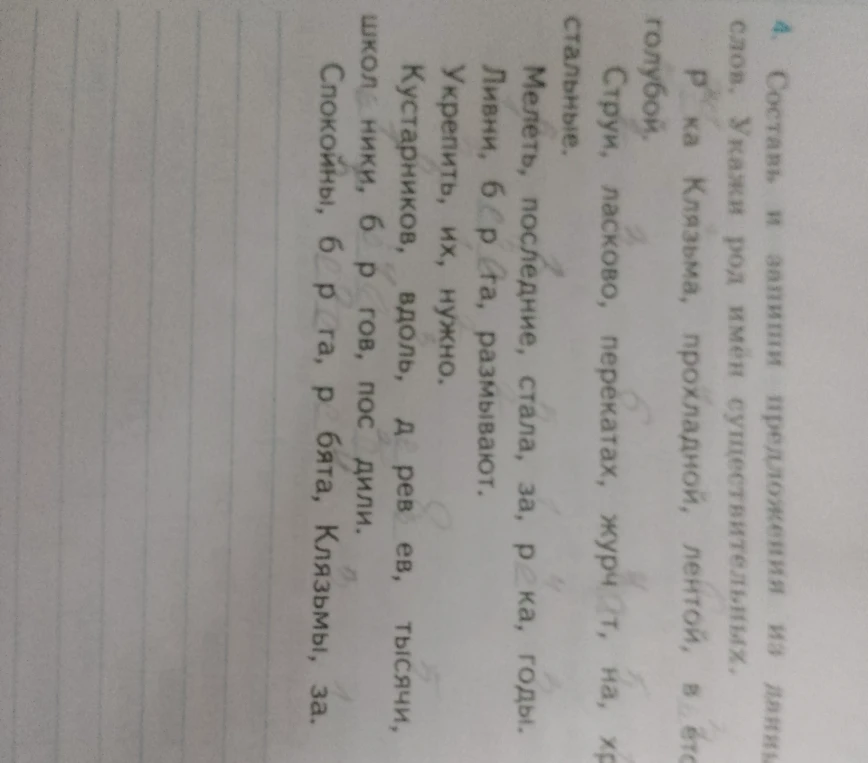 4. Составь и запиши предложения из
слов. Укажи род имён существительных.
р ка Клязьма, прохладной, лентой,
голубой.
Струи, ласково, перекатах, журч т, на,
стальные.
Мелеть, последние, стала, за, р ка, годы.
Ливни, б р га, размывают.
Укрепить, их, нужно.
Кустарников, вдоль, д рев ев, тысячи,
школ ники, б р гов, пос дили.
Спокойны, б р га, р бята, Клязьмы, за.